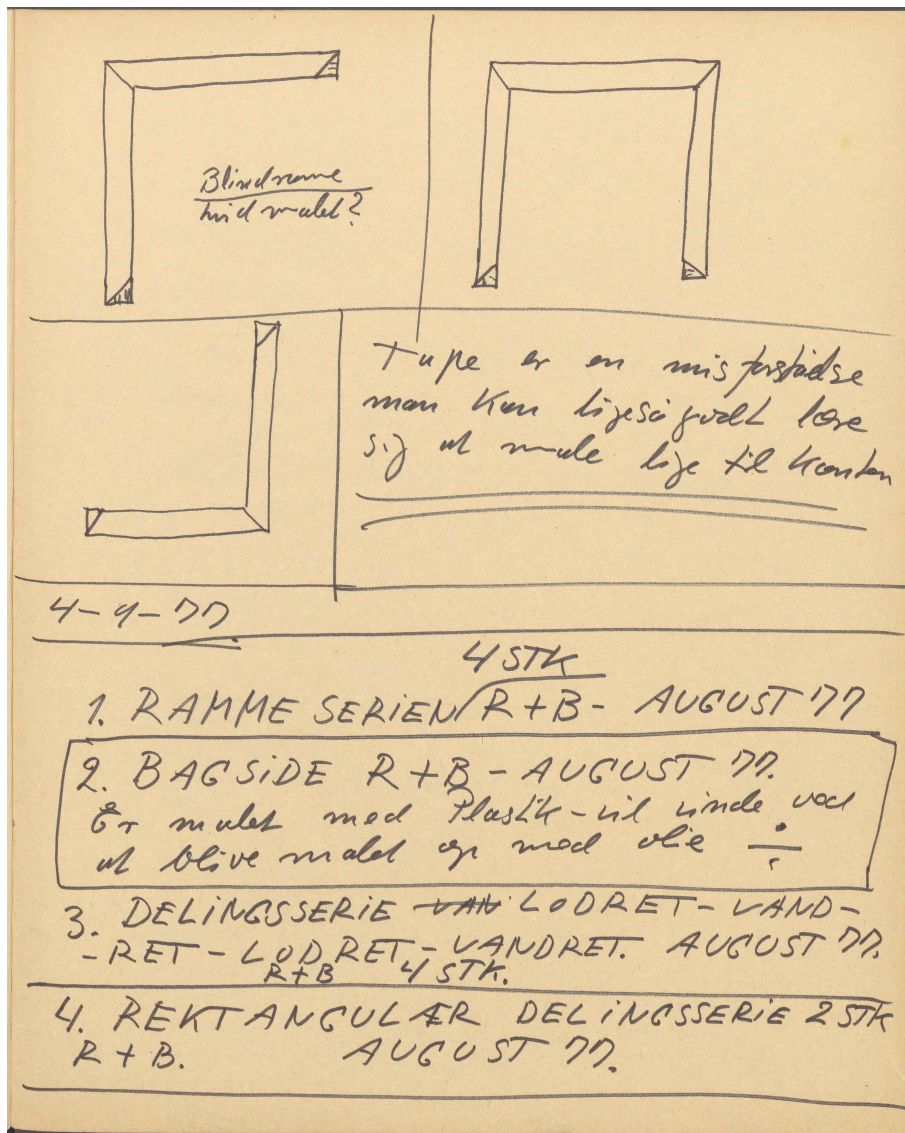 Blindrame
hvidmalet?
Tape er en misforståelse
man kan ligeså godt lære
sig at male lige til kanten
4-9-77
4 STK
1. RAMME SERIEN R+B - AUGUST 77
2. BAGSIDE R+B - AUGUST 77.
Er malet med Plastik - vil vinde ved
at blive malet op med olie ÷
3. DELINGSSERIE VAN LODRET - VAND-
- RET - LODRET - VANDRET. AUGUST 77.
R+B 4 STK.
4. REKTANGULÆR DELINGSSERIE 2 STK
R + B. AUGUST 77.